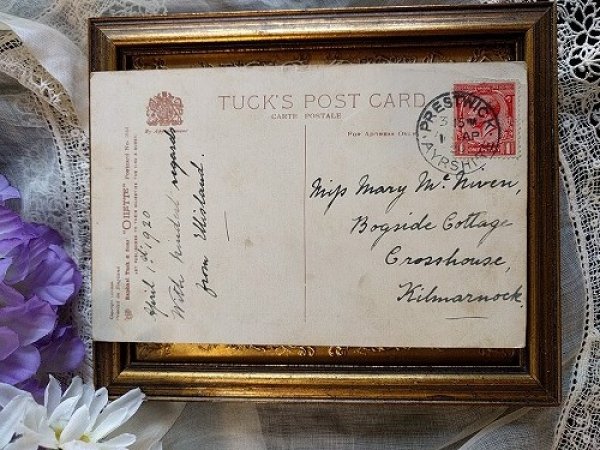 TUCK'S POST CARD
CARTE POSTALE
By Appointment
FOR ADDRESS ONLY
PRESTWICK
AYRSHIRE
AP
Miss Mary McNiven,
Bogside Cottage
Crosshouse,
Kilmarnock
April 1st 1920
With kindest regards
from Ellisland.
Raphael Tuck & Sons' "OILETTE" Postcard No.